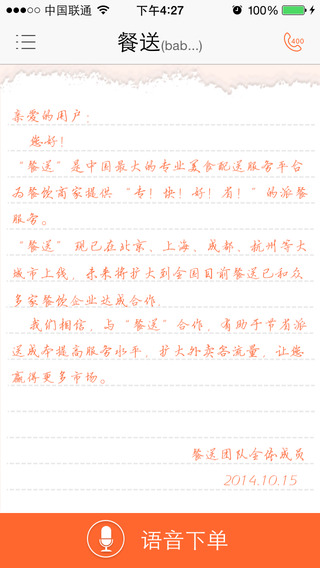 中国联通 下午4:27 100%
餐送(bab...)
400
亲爱的用户：
您好！
“餐送”是中国最大的专业美食配送服务平台
为餐饮商家提供“专！快！好！省！”的派餐
服务。
“餐送” 现已在北京、上海、成都、杭州等大
城市上线，未来将扩大到全国目前餐送已和众
多家餐饮企业达成合作。
我们相信，与“餐送”合作，有助于节省派
送成本提高服务水平，扩大外卖客流量，让您
赢得更多市场。
餐送团队全体成员
2014.10.15
语音下单